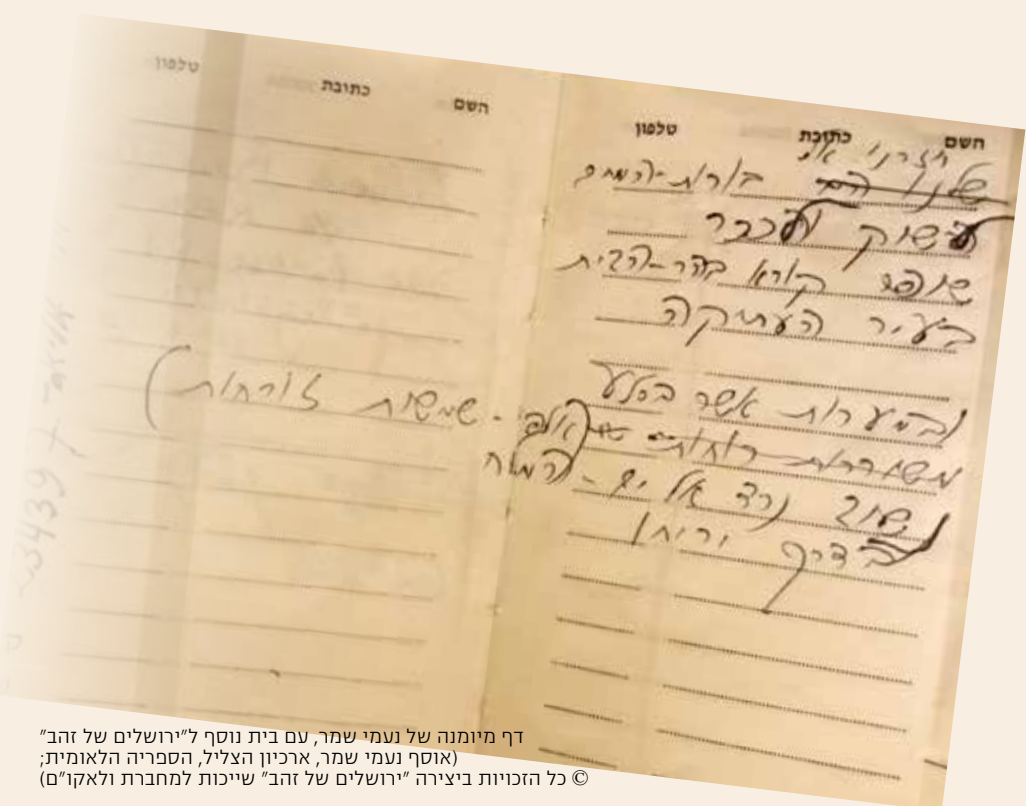 השם כתובת טלפון
חזרנו אל
שלנו הם בורות-המים
לשוק ולככר
שופר קורא בהר-הבית
בעיר העתיקה
ובמערות אשר בסלע
משוררות רוחות (אלפי - שמשות זורחות)
נשוב נרד אל ים-המלח
בדרך יריחו
השם כתובת טלפון
דף מיומנה של נעמי שמר, עם בית נוסף ל"ירושלים של זהב"
(אוסף נעמי שמר, ארכיון הצליל, הספריה הלאומית;
© כל הזכויות ביצירה "ירושלים של זהב" שייכות למחברת ולאקו"ם)